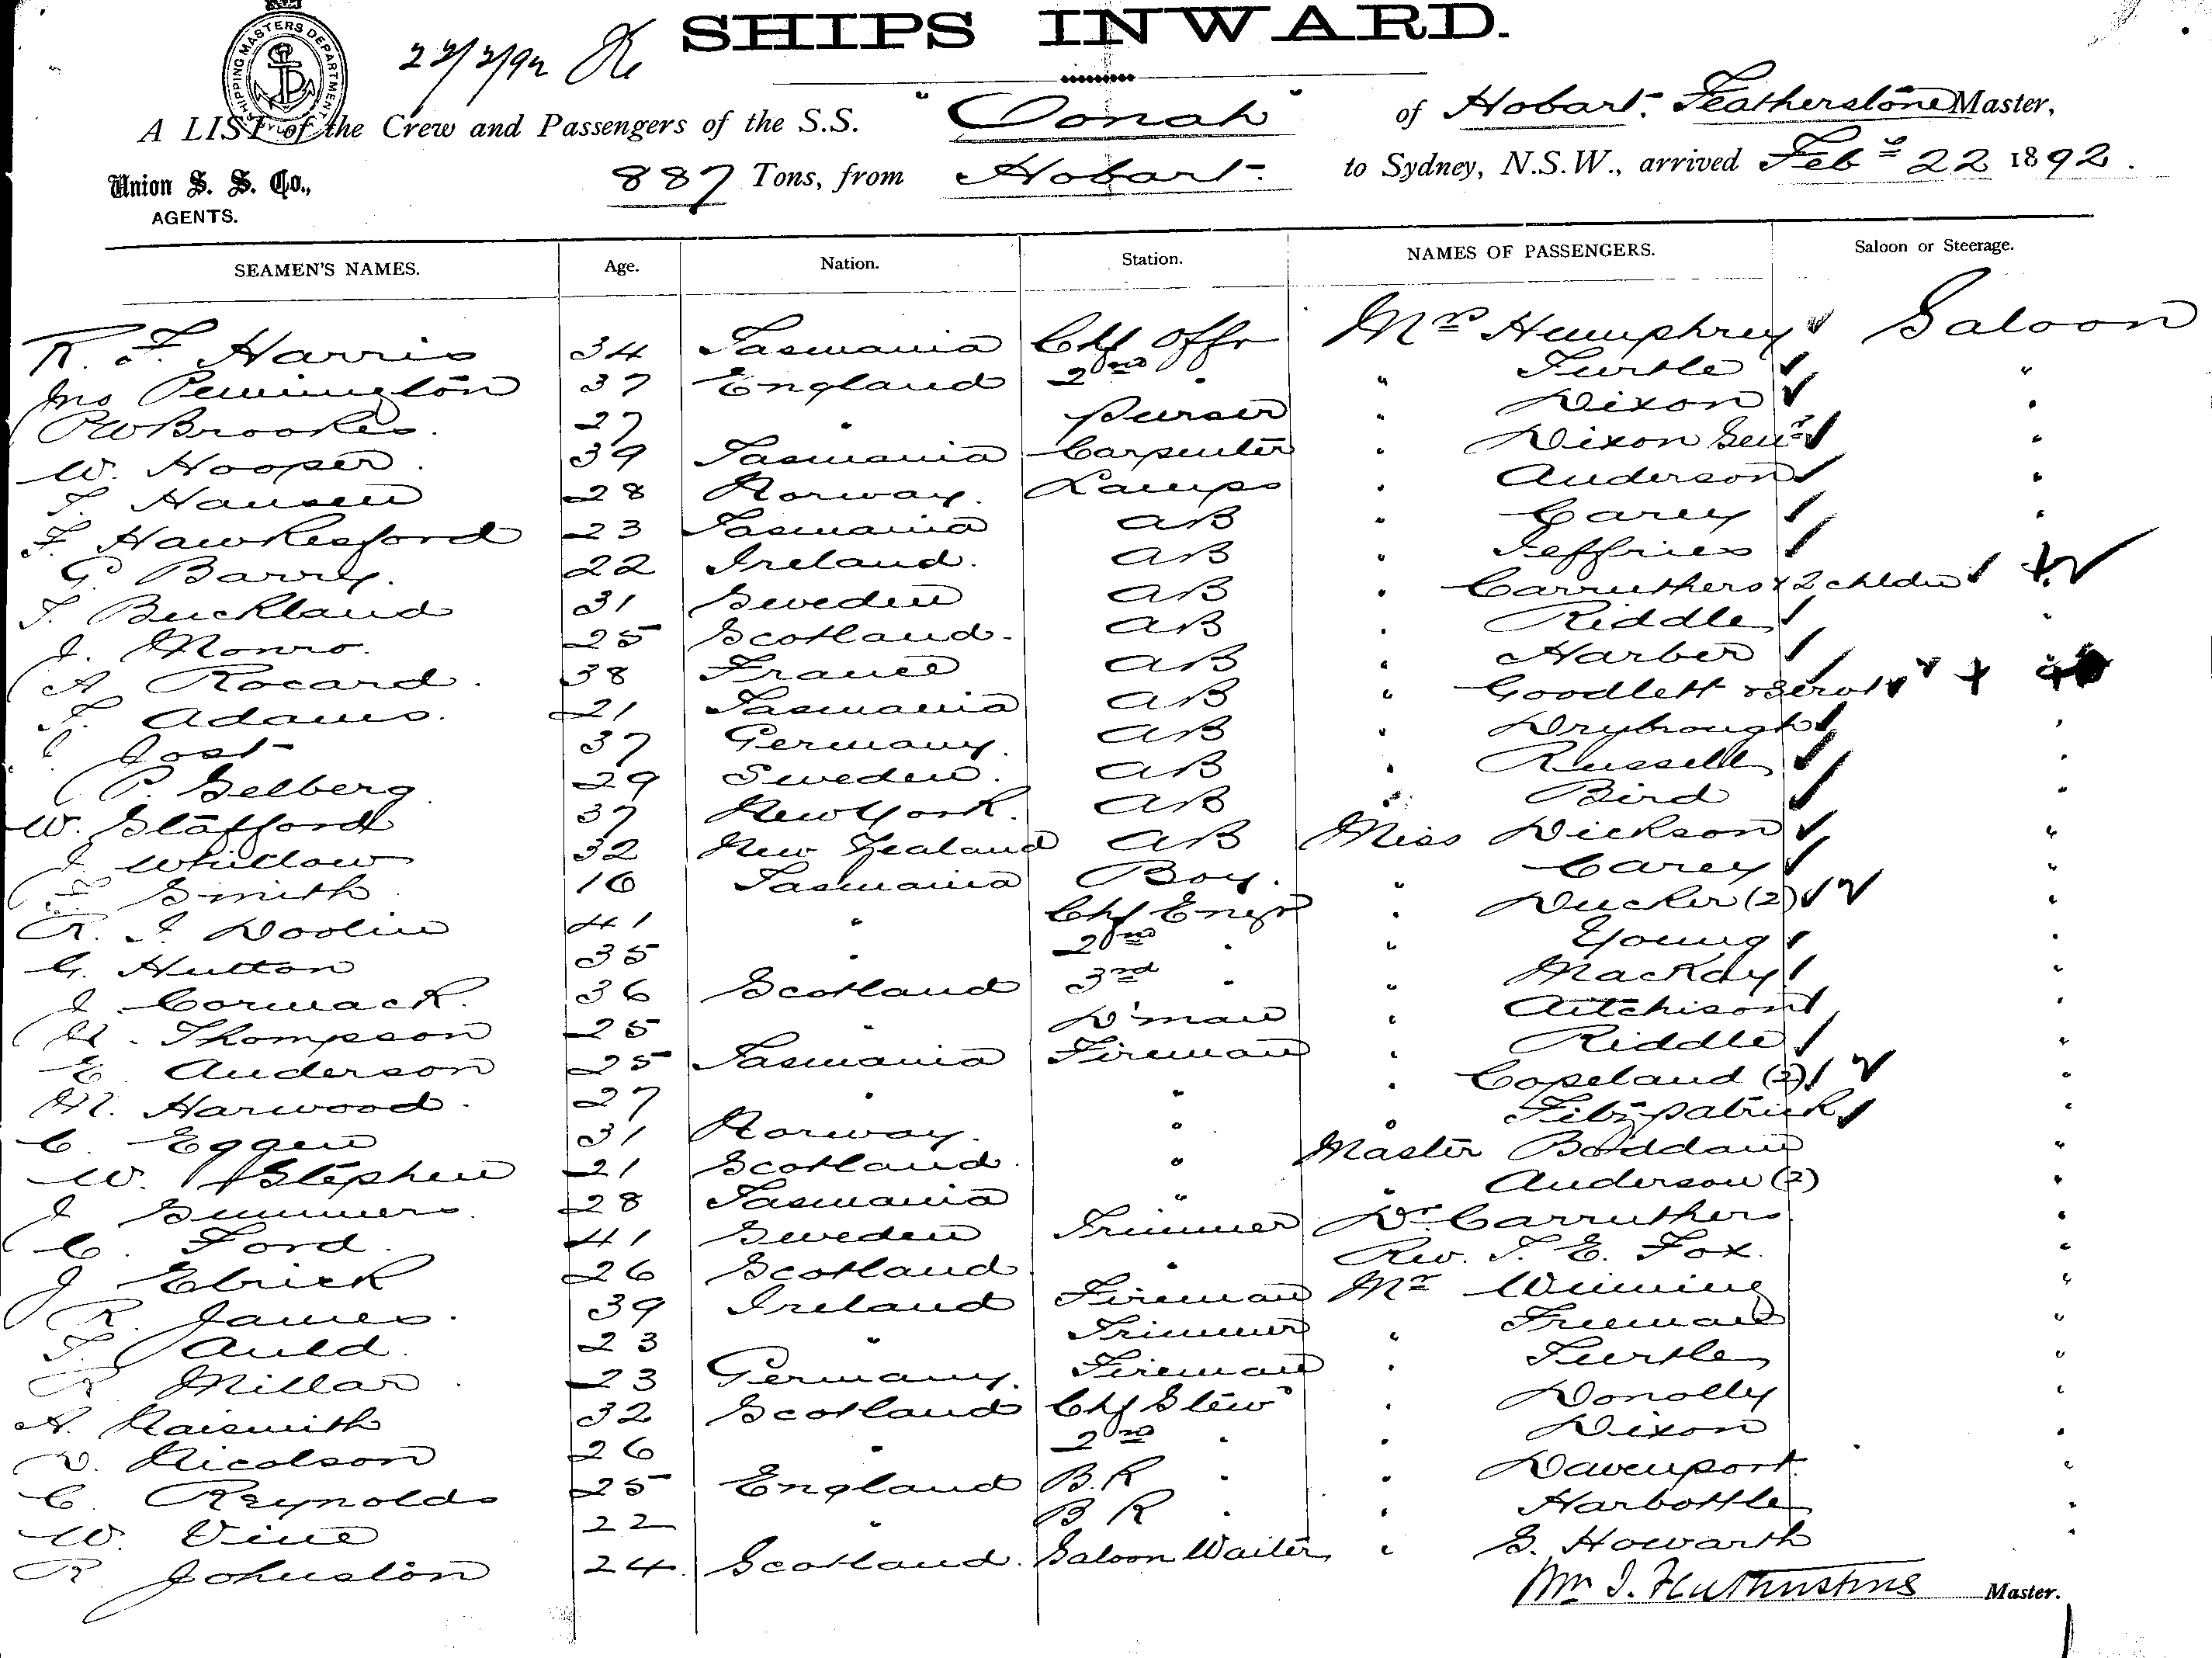 SHIPPING MASTERS DEPARTMENT
22/2/92
SHIPS INWARD.
A LIST of the Crew and Passengers of the S.S. "Oonah" of Hobart. Featherstone Master,
Union S. S. Co., AGENTS. 887 Tons, from Hobart to Sydney, N.S.W., arrived Feby 22 1892.
SEAMEN'S NAMES. Age. Nation. Station. NAMES OF PASSENGERS. Saloon or Steerage.
R. F. Harris 34 Tasmania Chf Offr Mrs Humphrey Saloon
Jno Pennington 37 England 2nd " " Turtle "
P W Brookes. 27 " Purser " Dixon "
W. Hooper. 39 Tasmania Carpenter " Dixon Senr "
T. Hansen 28 Norway. Lamps " Anderson "
F. Hawkesford 23 Tasmania AB " Carey "
G. Barry. 22 Ireland. AB " Jeffries
T. Buckland 31 Sweden AB " Carruthers & 2 childn
J. Monro. 25 Scotland. AB " Riddle "
A Rocard. 38 France AB " Harber
T. Adams. 21 Tasmania AB " Goodlett & Servt
J Jost 37 Germany. AB " Drybrough "
P. Selberg 29 Sweden. AB " Russell "
W. Stafford 37 New York. AB " Bird "
J Whitlow 32 New Zealand AB Miss Dickson "
Smith 16 Tasmania Boy. " Carey "
R. J. Doolin 41 " Chf Engr " Ducker (2) "
G. Hutton 35 " 2nd " " Young "
J. Cormack. 36 Scotland 3rd " " Mackay "
Thompson 25 " D'man " Aitchison "
E. Anderson 25 Tasmania Fireman " Riddle "
M. Harwood. 27 " " " Copeland (2) "
C. Eggen 31 Norway. " " Fitzpatrick "
W. Stephen 21 Scotland. " Master Boddam "
J Summers. 28 Tasmania " " Anderson (2) "
C. Ford. 41 Sweden Trimmer Dr Carruthers "
J Ebrick 26 Scotland " Rev. T. E. Fox. "
R. James. 39 Ireland Fireman Mr Winning "
T. Auld. 23 " Trimmer " Freeman "
R Millar. 23 Germany. Fireman " Turtle "
A. Naismith 32 Scotland Chf Stewd " Donolly "
D. Nicolson 26 " 2nd " " Dixon "
C. Reynolds 25 England B.R " " Davenport. "
W. Vine 22 " B R " " Harbottle "
R Johnston 24. Scotland. Saloon Waiter " G. Howarth "
Wm J. Featherstone Master.